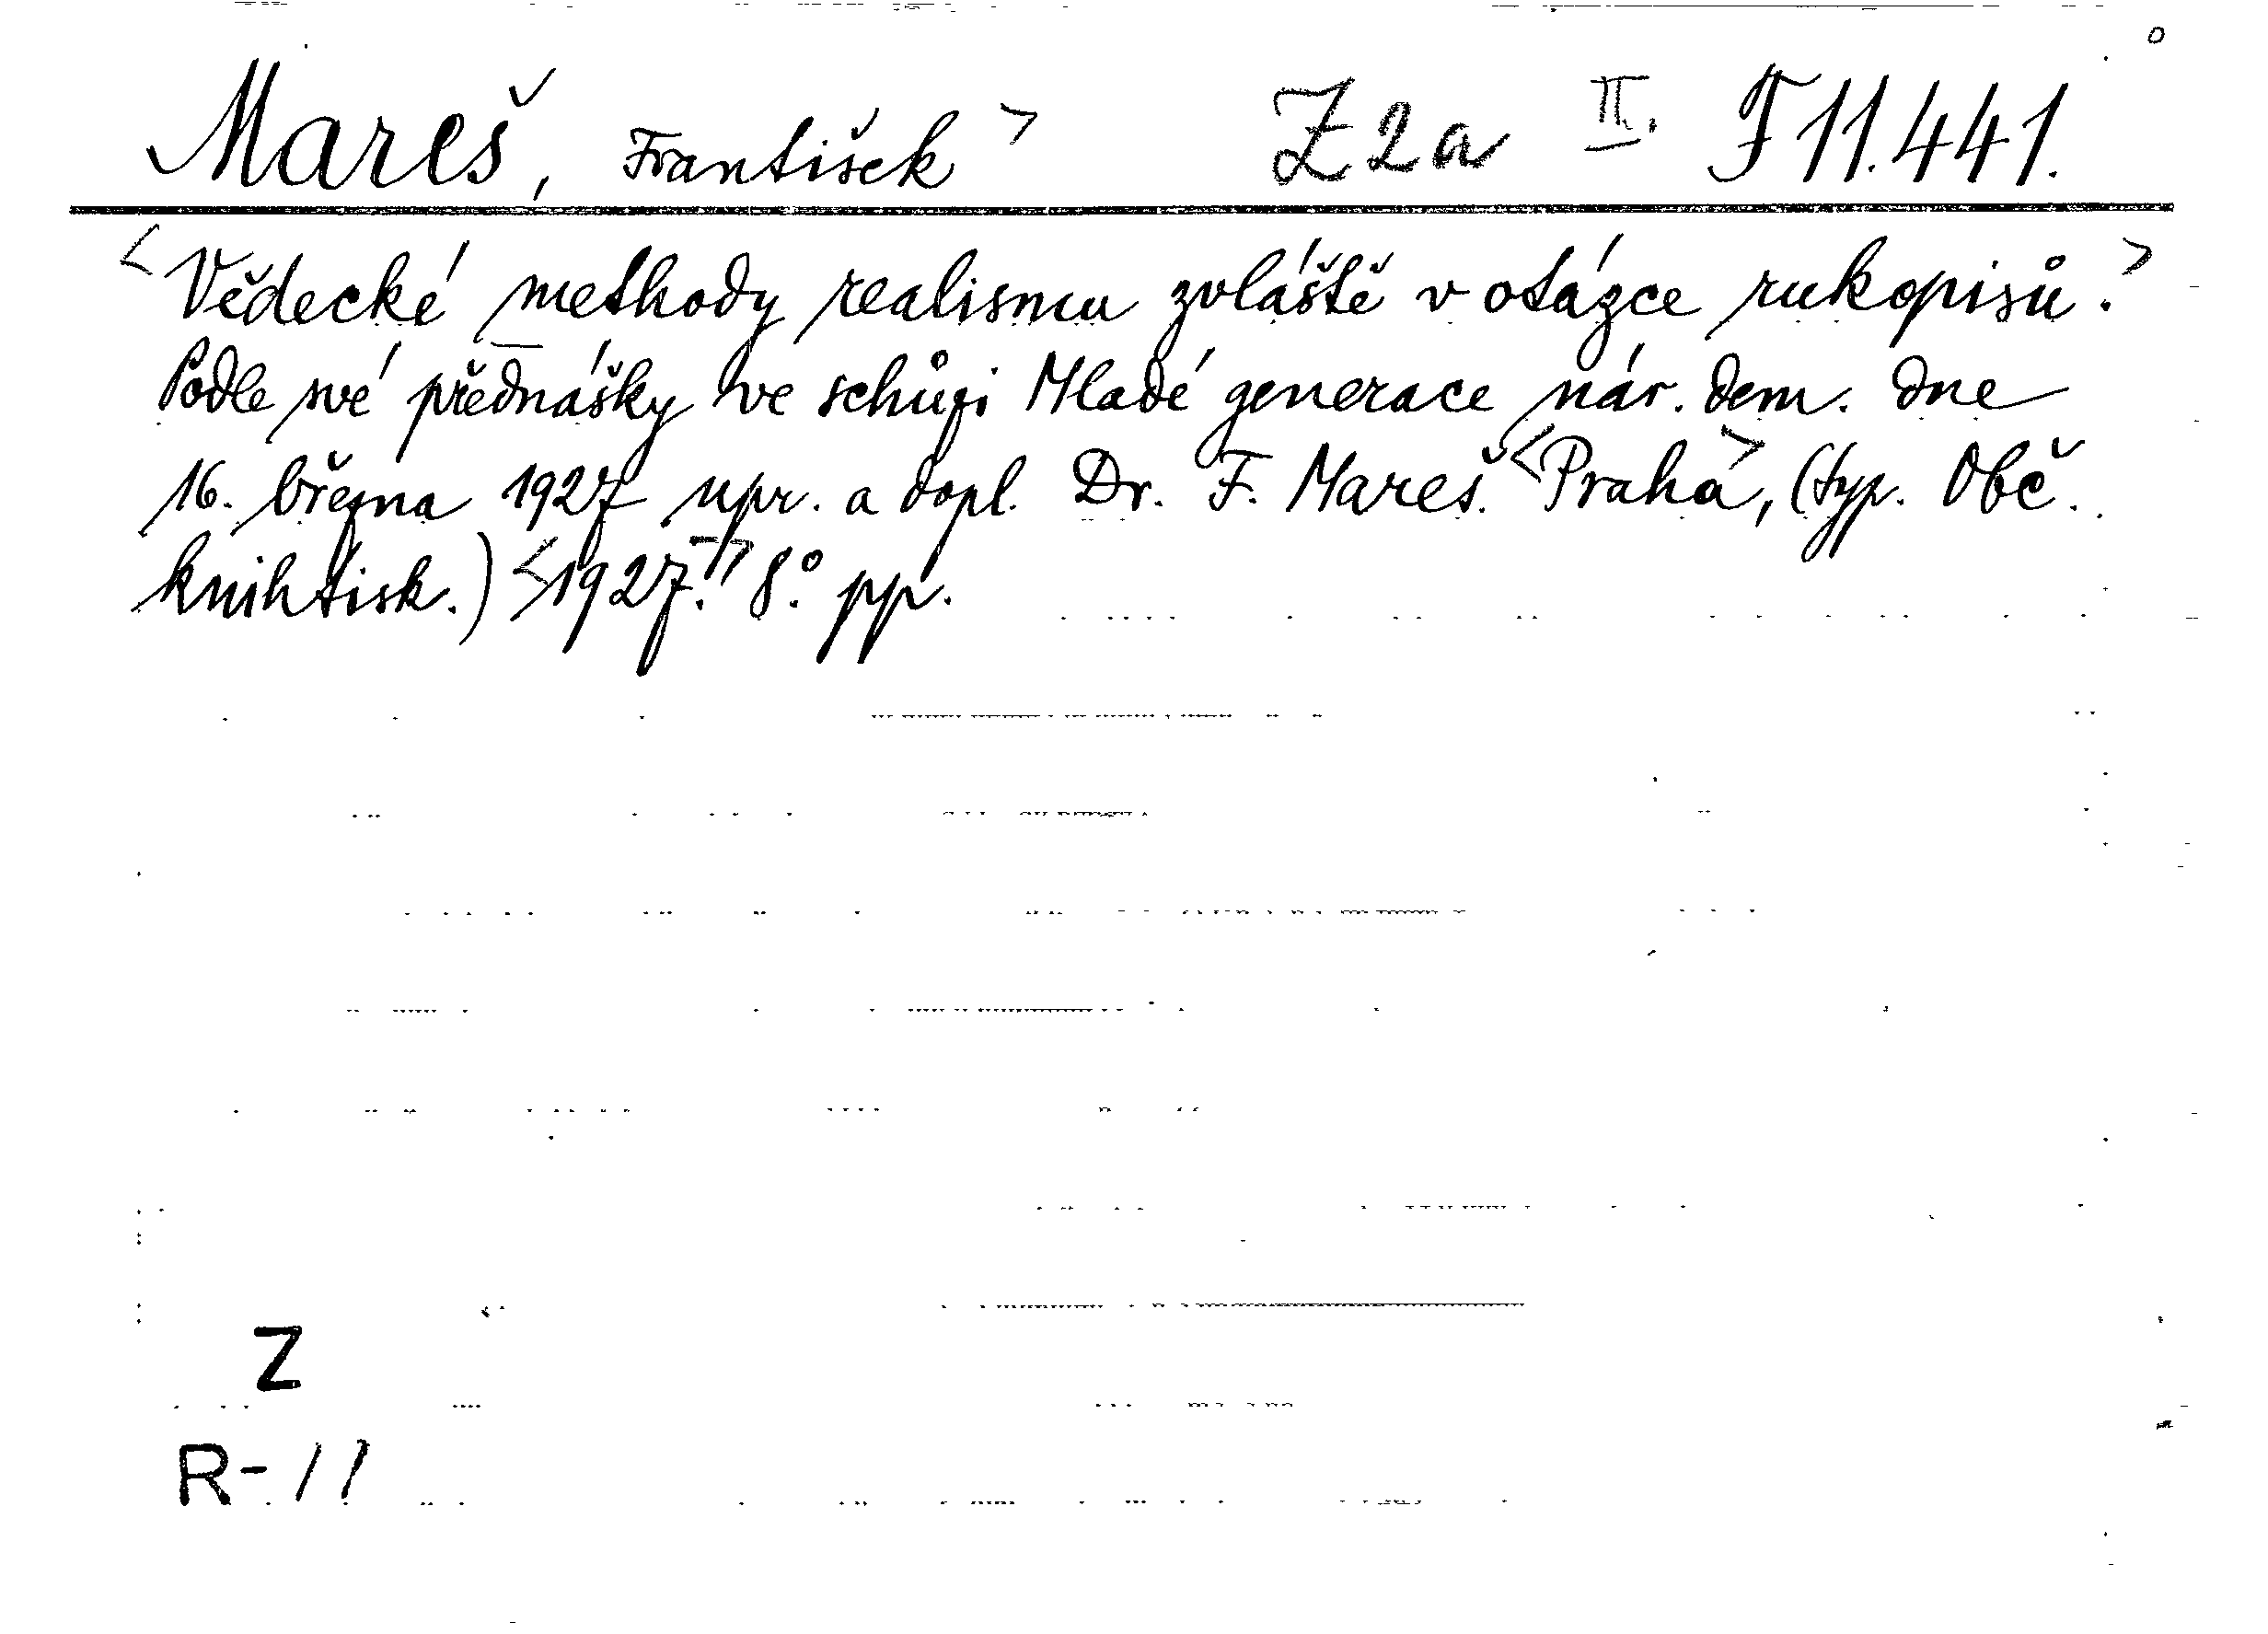 Mareš, František > Z 2 a II. F 11.441.
<Vědecké methody realismu zvláště v otázce rukopisů.>
Podle své přednášky ve schůzi Mladé generace nár. dem. dne
16. března 1927 upr. a dopl. Dr. F. Mareš. <Praha>, (typ. Obč.
knihtisk.) <1927.> 8.° pp.
Z
R-11